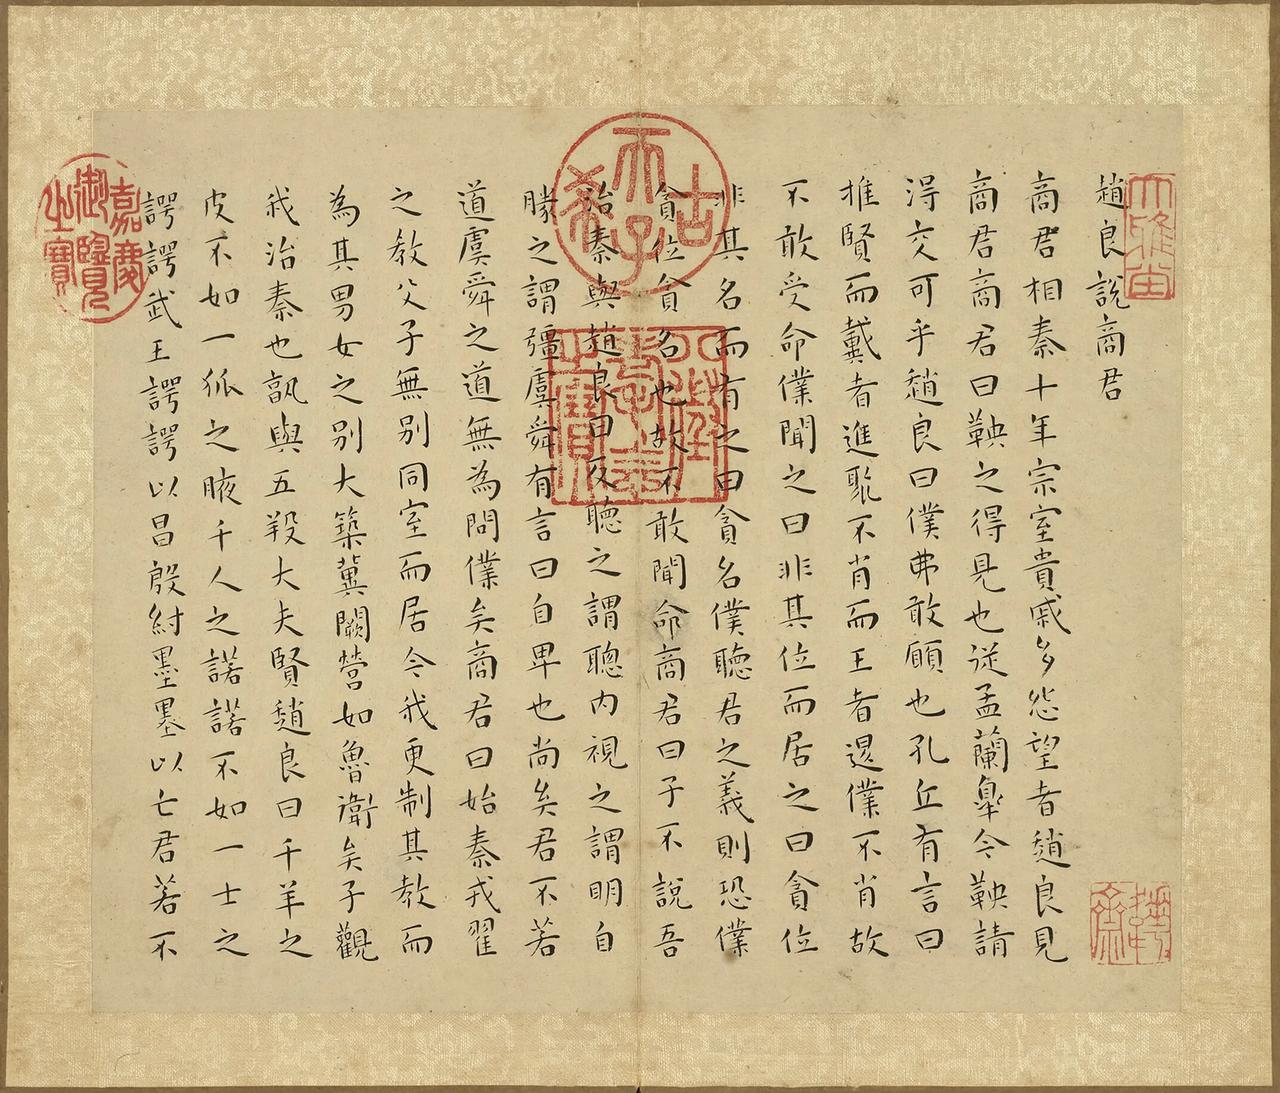 趙良說商君
商君相秦十年宗室貴戚多怨望者趙良見
商君商君曰鞅之得見也從孟蘭臯今鞅請
得交可乎趙良曰僕弗敢願也孔丘有言曰
推賢而戴者進聚不肖而王者退僕不肖故
不敢受命僕聞之曰非其位而居之曰貪位
非其名而有之曰貪名僕聽君之義則恐僕
貪位貪名也故不敢聞命商君曰子不說吾
治秦與趙良曰反聽之謂聰內視之謂明自
勝之謂彊虞舜有言曰自卑也尚矣君不若
道虞舜之道無為問僕矣商君曰始秦戎翟
之教父子無別同室而居今我更制其教而
為其男女之別大築冀闕營如魯衛矣子觀
我治秦也孰與五羖大夫賢趙良曰千羊之
皮不如一狐之腋千人之諾諾不如一士之
諤諤武王諤諤以昌殷紂墨墨以亡君若不
古希天子
八徵耄念之寶
嘉慶御覽之寶